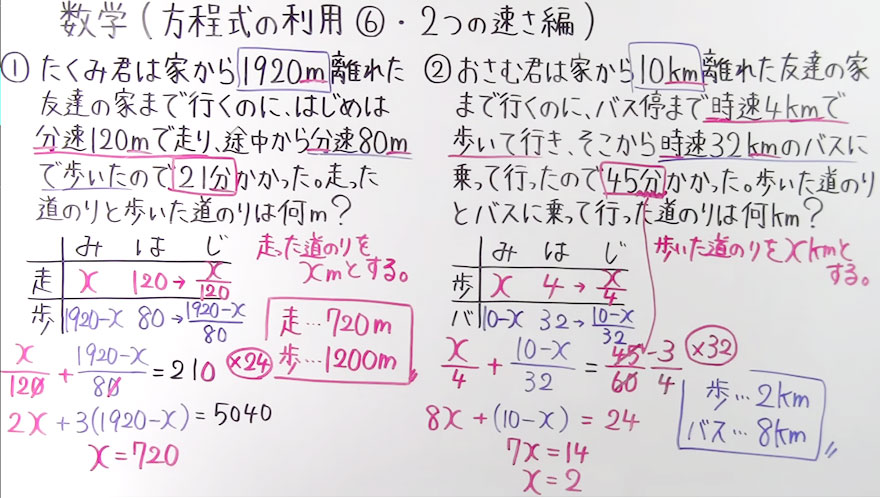 数学(方程式の利用⑥・2つの速さ編)
① たくみ君は家から1920m離れた
友達の家まで行くのに、はじめは
分速120mで走り、途中から分速80m
で歩いたので21分かかった。走った
道のりと歩いた道のりは何m?
み は じ
走 x 120→x/120
歩 1920-x 80→1920-x/80
走った道のりを
xmとする。
走…720m
歩…1200m
x/120 + 1920-x/80 = 210 ×24
2x+3(1920-x)=5040
x=720
② おさむ君は家から10km離れた友達の家
まで行くのに、バス停まで時速4kmで
歩いて行き、そこから時速32kmのバスに
乗って行ったので45分かかった。歩いた道のり
とバスに乗って行った道のりは何km?
み は じ
歩 x 4→x/4
バ 10-x 32→10-x/32
歩いた道のりをxkmと
する。
x/4 + 10-x/32 = 45/60 3/4 ×32
8x+(10-x)=24
7x=14
x=2
歩…2km
バス…8km